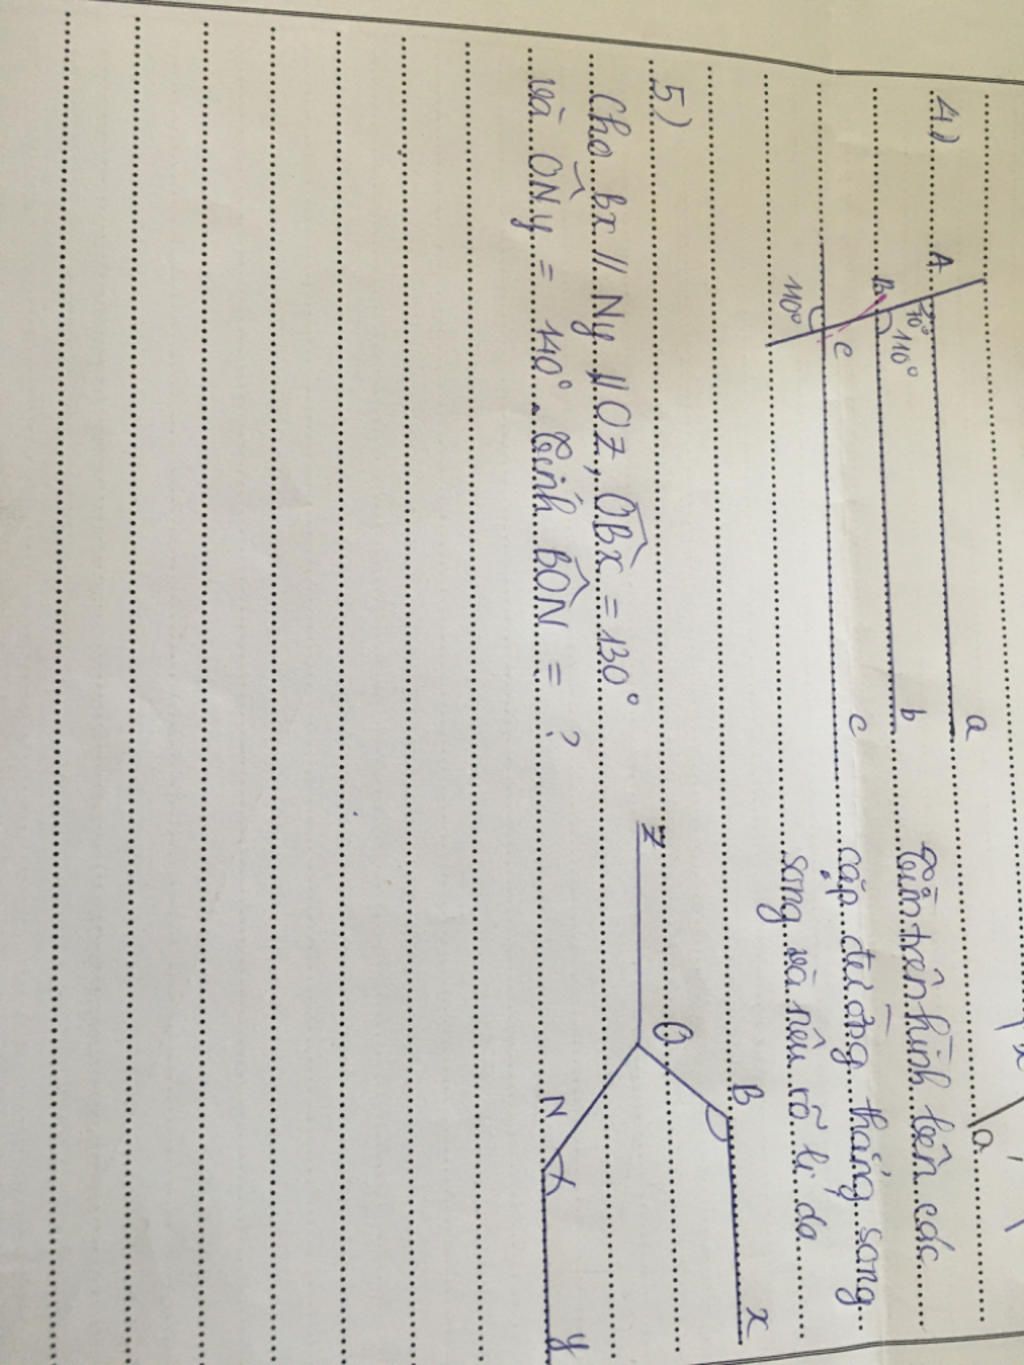 4)
A
70°
a
B
110°
b
C
110°
c
Tìm trên hình bên các
cặp đường thẳng song
song và nêu rõ lí do
5)
Cho Bx // Ny // OZ, OBx = 130°
và ONy = 140°. Tính BON = ?
Z
O
B
x
N
y
a